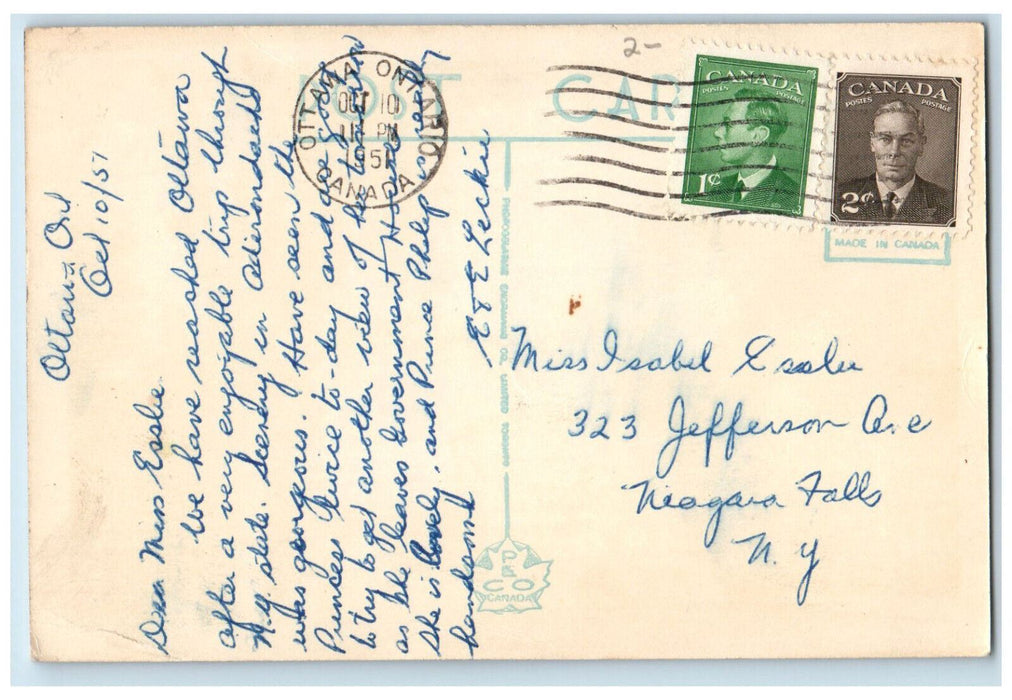 2-
POST CARD
OTTAWA ONTARIO
OCT 10
11 PM
1951
CANADA
CANADA
POSTES POSTAGE
1¢
CANADA
POSTES POSTAGE
2¢
MADE IN CANADA
Ottawa Ont
Oct 10/51
Dear Miss Esslie.
We have reached Ottawa
after a very enjoyable trip through
N.Y. state. Scenery in Adirondacks
was gorgeous. Have seen the
Princess twice to-day and are going
to try to get another view of her to-morrow
as she leaves Government House.
She is lovely, and Prince Philip is really
handsome
E & E Leckie
PHOTOGELATINE ENGRAVING CO. LIMITED OTTAWA
PECO
CANADA
Miss Isabel Esslie
323 Jefferson Ave
Niagara Falls
N.Y